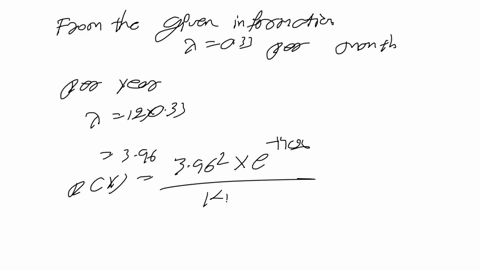 From the given information
λ = 0.33 per month
per year
λ = 12x0.33
= 3.96
P(X) = 3.96² x e